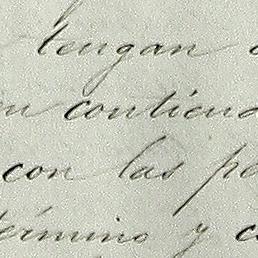 tengan
en contiend
con las pe
término y c